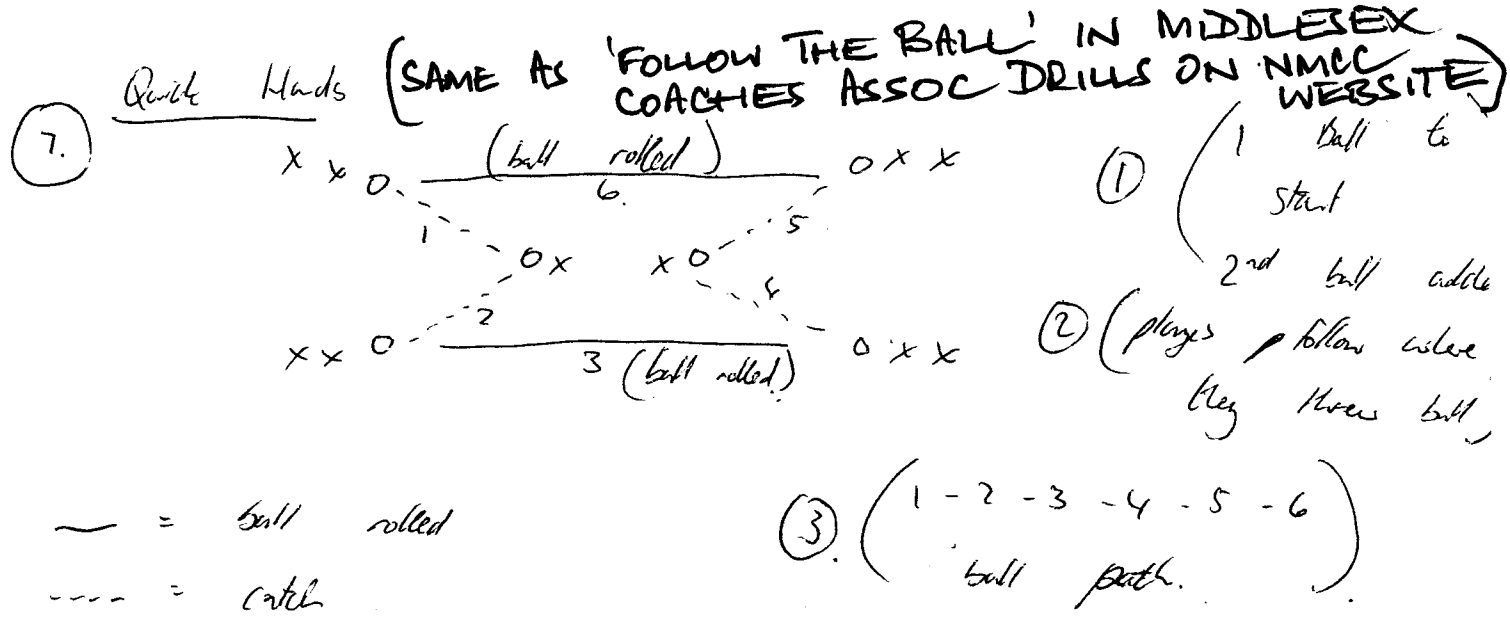 7.
Quick Hands (SAME AS 'FOLLOW THE BALL' IN MIDDLESEX
COACHES ASSOC DRILLS ON NMCC
WEBSITE)
X X O (ball rolled) O X X
6.
1 5
O X X O
2 4
X X O O X X
3 (ball rolled)
1 (1 Ball to
start
2nd ball added
2 (players follow where
they threw ball)
3. (1 - 2 - 3 - 4 - 5 - 6
ball path.)
— = ball rolled
---- = catch